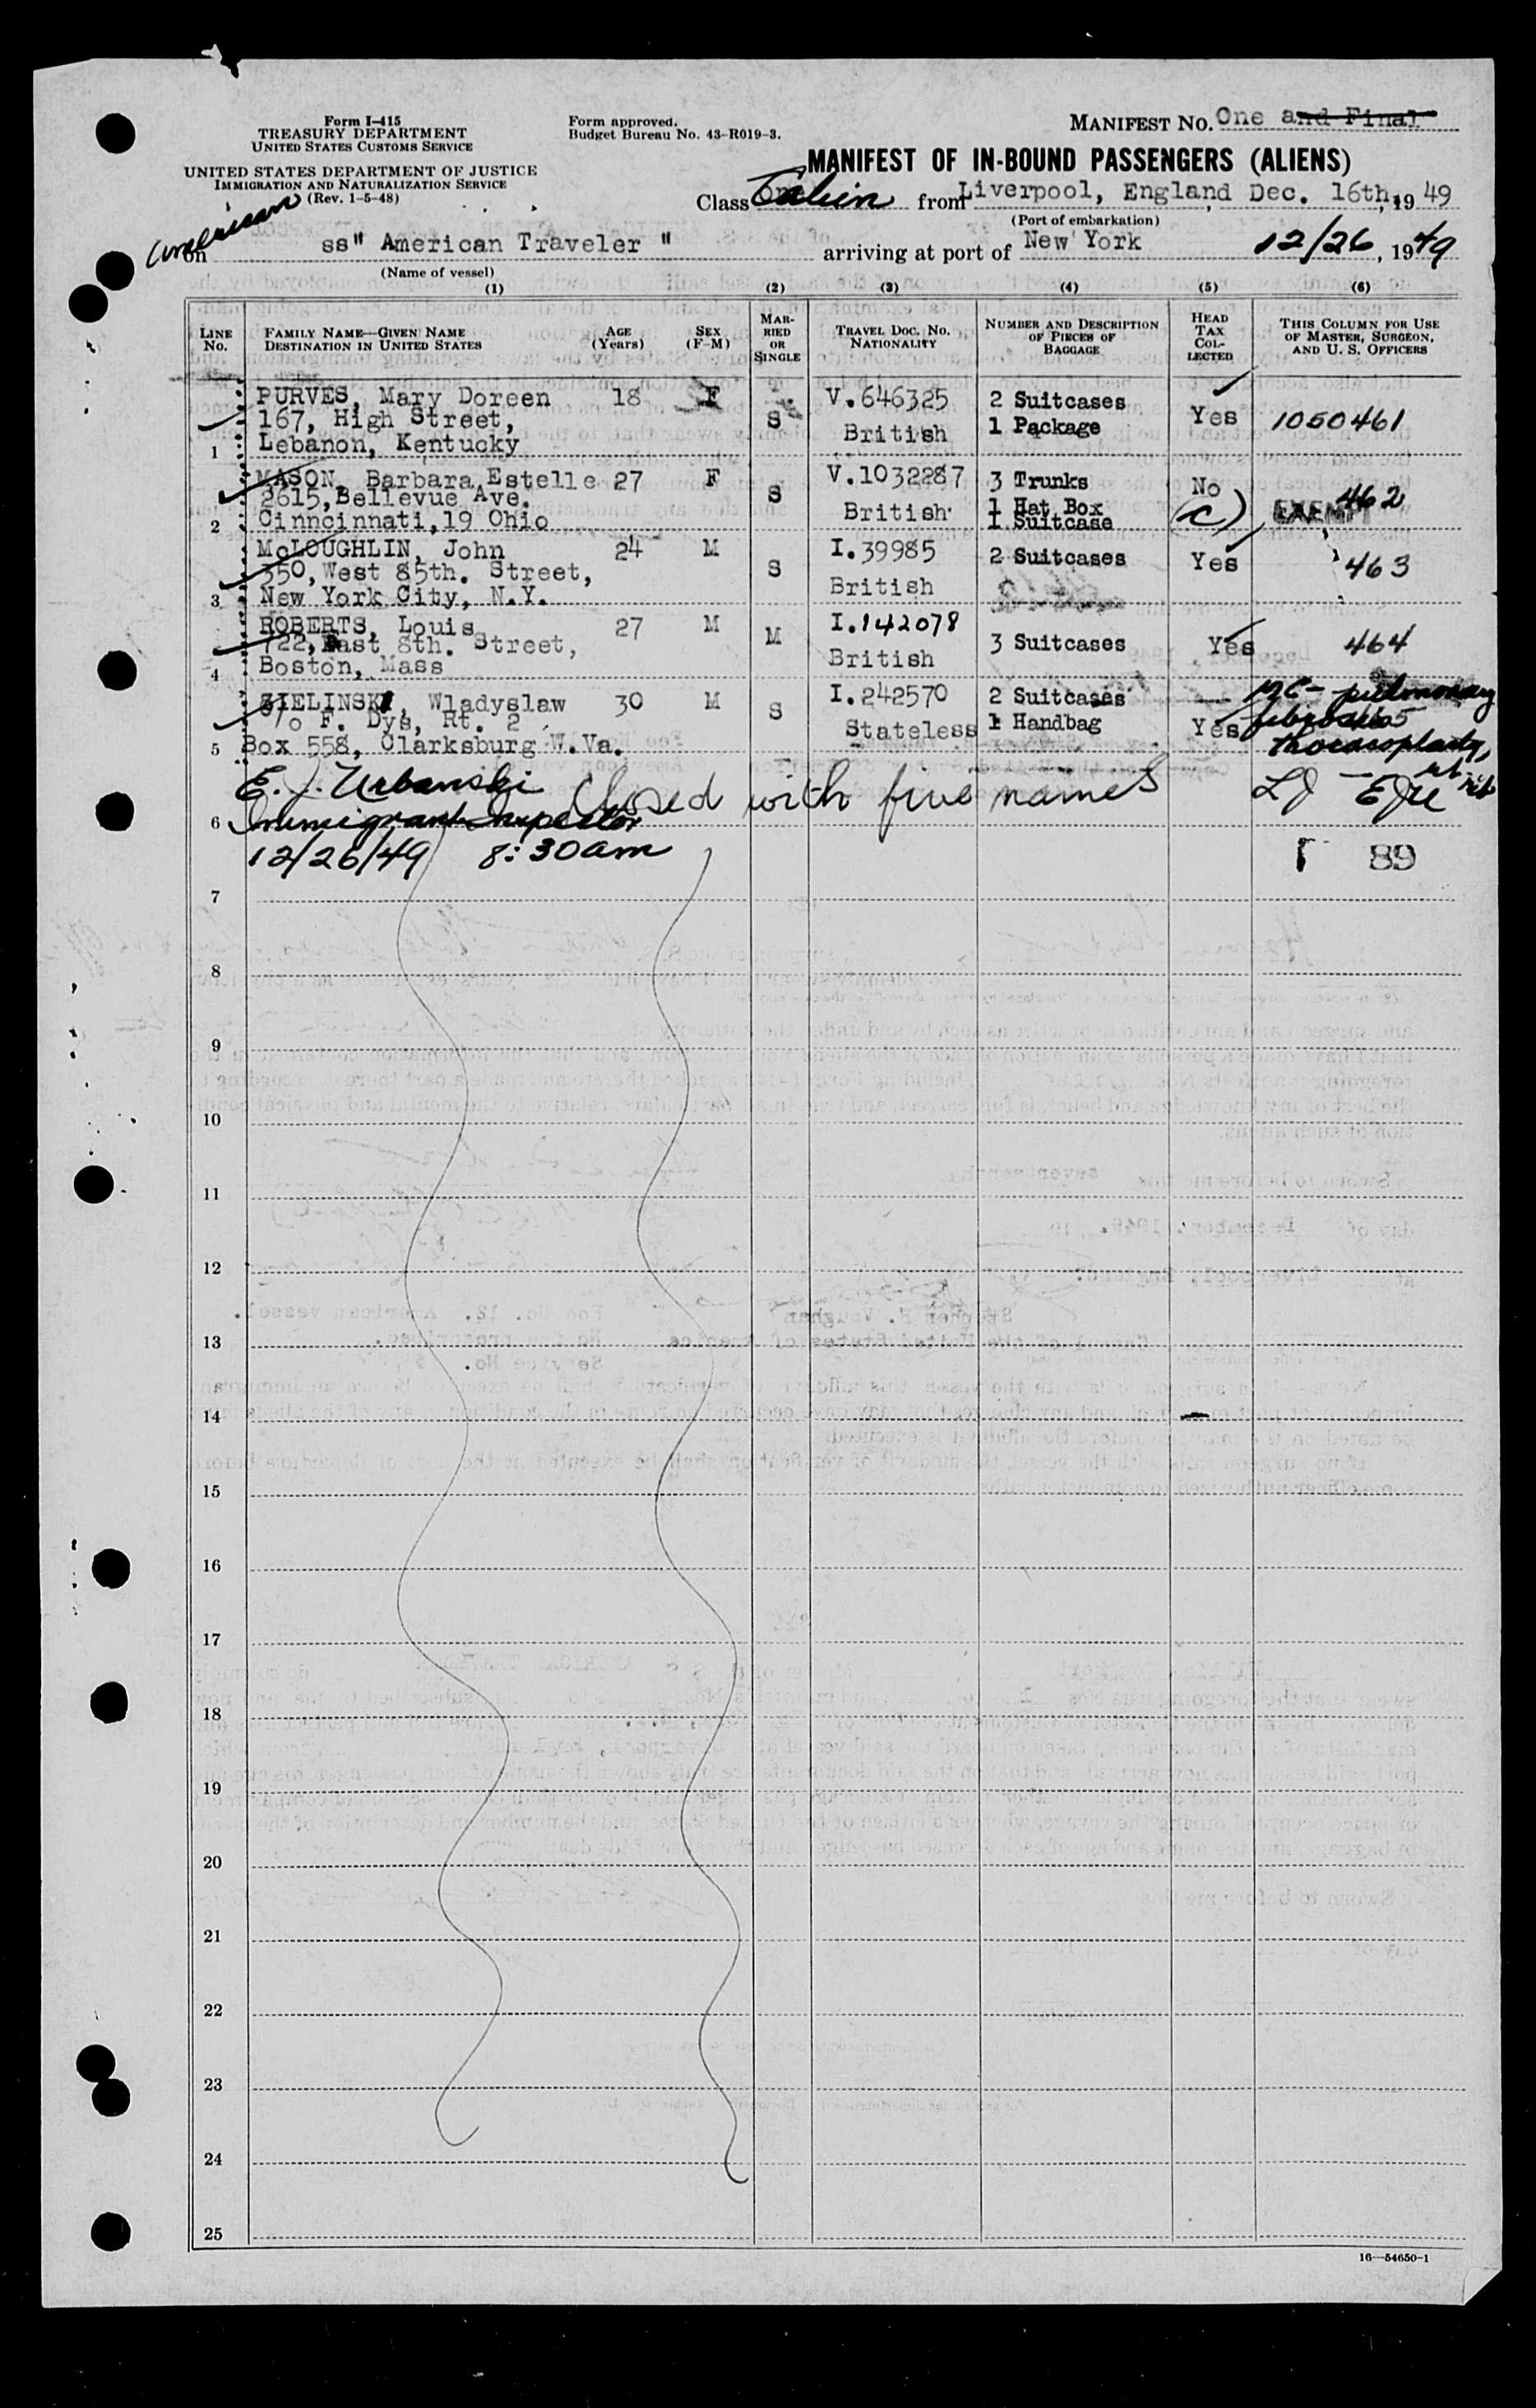 Form I-415
TREASURY DEPARTMENT
UNITED STATES CUSTOMS SERVICE
UNITED STATES DEPARTMENT OF JUSTICE
IMMIGRATION AND NATURALIZATION SERVICE
(Rev. 1-5-48)
Form approved.
Budget Bureau No. 43-R019-3.
MANIFEST NO. One and Final
MANIFEST OF IN-BOUND PASSENGERS (ALIENS)
Class Cabin from Liverpool, England Dec. 16th, 19 49
(Port of embarkation)
on ss" American Traveler " arriving at port of New York 12/26, 1949
(Name of vessel)
(1) (2) (3) (4) (5) (6)
LINE NO. FAMILY NAME—GIVEN NAME DESTINATION IN UNITED STATES AGE (Years) SEX (F-M) MARRIED OR SINGLE TRAVEL DOC. NO. NATIONALITY NUMBER AND DESCRIPTION OF PIECES OF BAGGAGE HEAD TAX COLLECTED THIS COLUMN FOR USE OF MASTER, SURGEON, AND U. S. OFFICERS
PURVES, Mary Doreen 18 F V.646325 2 Suitcases
167, High Street, S British 1 Package Yes 1050461
1 Lebanon, Kentucky
MASON, Barbara Estelle 27 F V.1032287 3 Trunks No
2615, Bellevue Ave. S British 1 Hat Box (C) EXEMPT 462
2 Cinncinnati, 19 Ohio 1 Suitcase
McLOUGHLIN, John 24 M I.39985 2 Suitcases Yes
350, West 85th. Street, S British 463
3 New York City, N.Y.
ROBERTS, Louis 27 M I.142078
722, East 8th. Street, M British 3 Suitcases Yes 464
4 Boston, Mass
ZIELINSKI, Wladyslaw 30 M I.242570 2 Suitcases — pulmonary
c/o F. Dys, Rt. 2 S Stateless 1 Handbag Yes fibrosis
5 Box 558, Clarksburg W.Va. thoracoplasty,
E. J. Urbanski Closed with five names
6 Immigrant Inspector
12/26/49 8:30am 89
7
8
9
10
11
12
13
14
15
16
17
18
19
20
21
22
23
24
25
16—54650-1